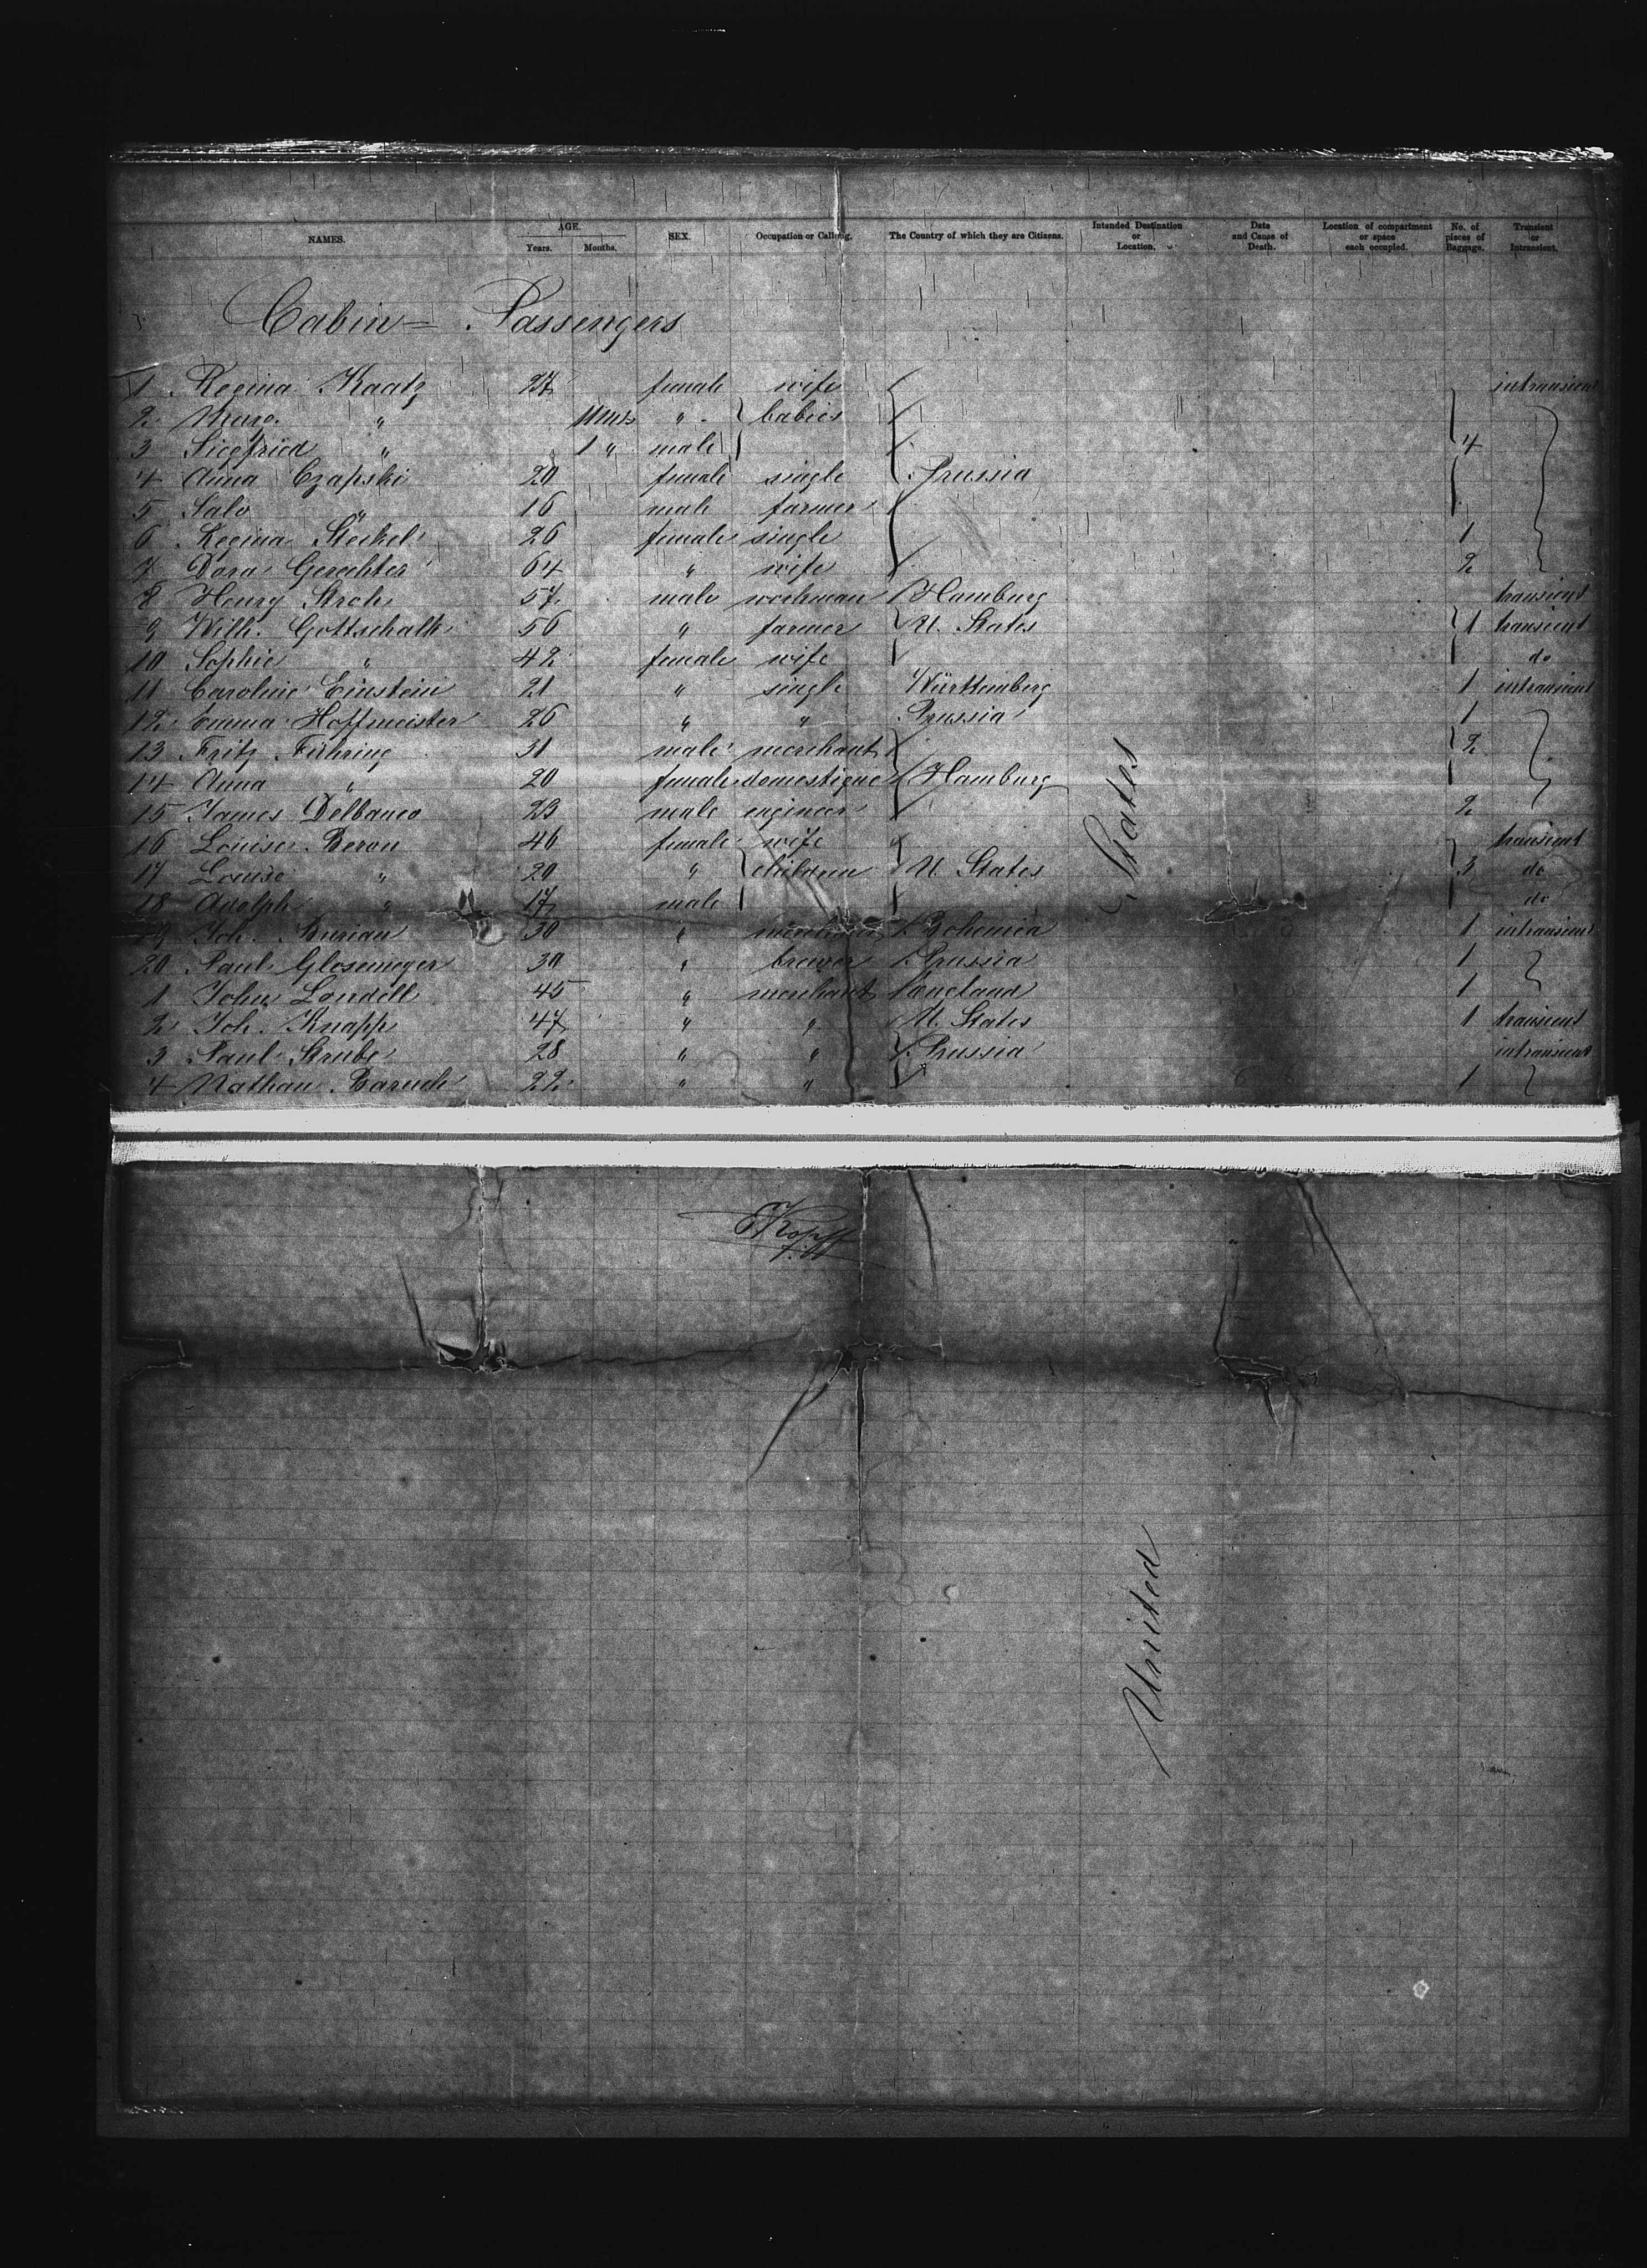 NAMES. AGE. Years. Months. SEX. Occupation or Calling. The Country of which they are Citizens. Intended Destination or Location. Date and Cause of Death. Location of compartment or space each occupied. No. of pieces of Baggage. Transient or Intransient.
Cabin= Passengers
1 Regina Kaatz 27 female wife intransient
2 " 11 mts " babies
3 Siegfried " 1 " male 4
4 Anna Czapski 20 female single Prussia
5 Salo " 16 male farmer
6 Regina Steckel 26 female single 1
7 Dora Gerechter 64 " wife 2
8 Henry Stroh 57 male workman Hamburg transient
9 Wilh. Gottschalk 56 " farmer U. States 1 transient
10 Sophie " 42 female wife do
11 Caroline Einstein 21 " single Württemberg 1 intransient
12 Emma Hoffmeister 26 " " Prussia 1
13 Fritz Führing 31 male merchant 2
14 Anna " 20 female domestique Hamburg
15 James Delbanco 23 male engineer 2
16 Louise Beron 46 female wife transient
17 Louise " 20 " children U. States 3 do
18 Adolph " 17 male do
19 Joh. Burian 30 " merchant Bohemia 1 intransient
20 Paul Glosemeyer 30 " brewer Prussia 1
1 John Londell 45 " merchant England 1
2 Joh. Knapp 47 " " U. States 1 transient
3 Paul Strube 28 " " Prussia intransient
4 Nathan Baruch 22 " " 1
United States